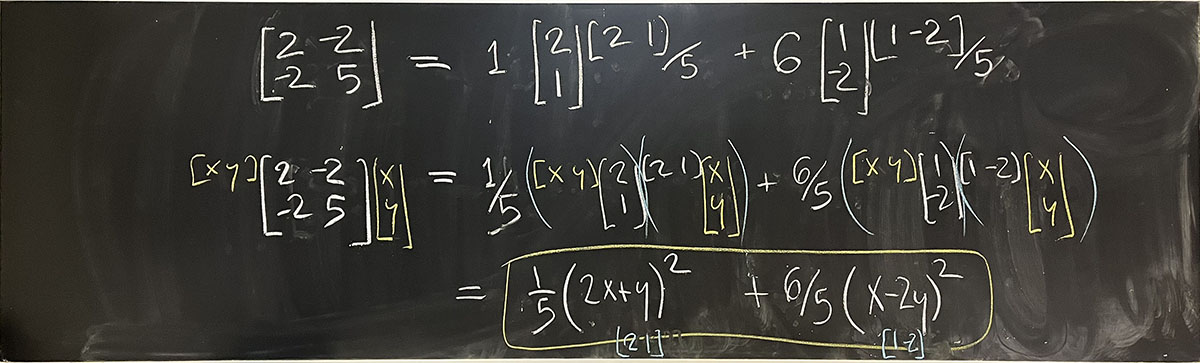 [2 -2 -2 5] = 1 [2 1] [2 1]/5 + 6 [1 -2] [1 -2]/5
[x y] [2 -2 -2 5] [x y] = 1/5 ([x y] [2 1]) ([2 1] [x y]) + 6/5 ([x y] [1 -2]) ([1 -2] [x y])
= 1/5 (2x+y)² + 6/5 (x-2y)²
[2 1] [1 -2]